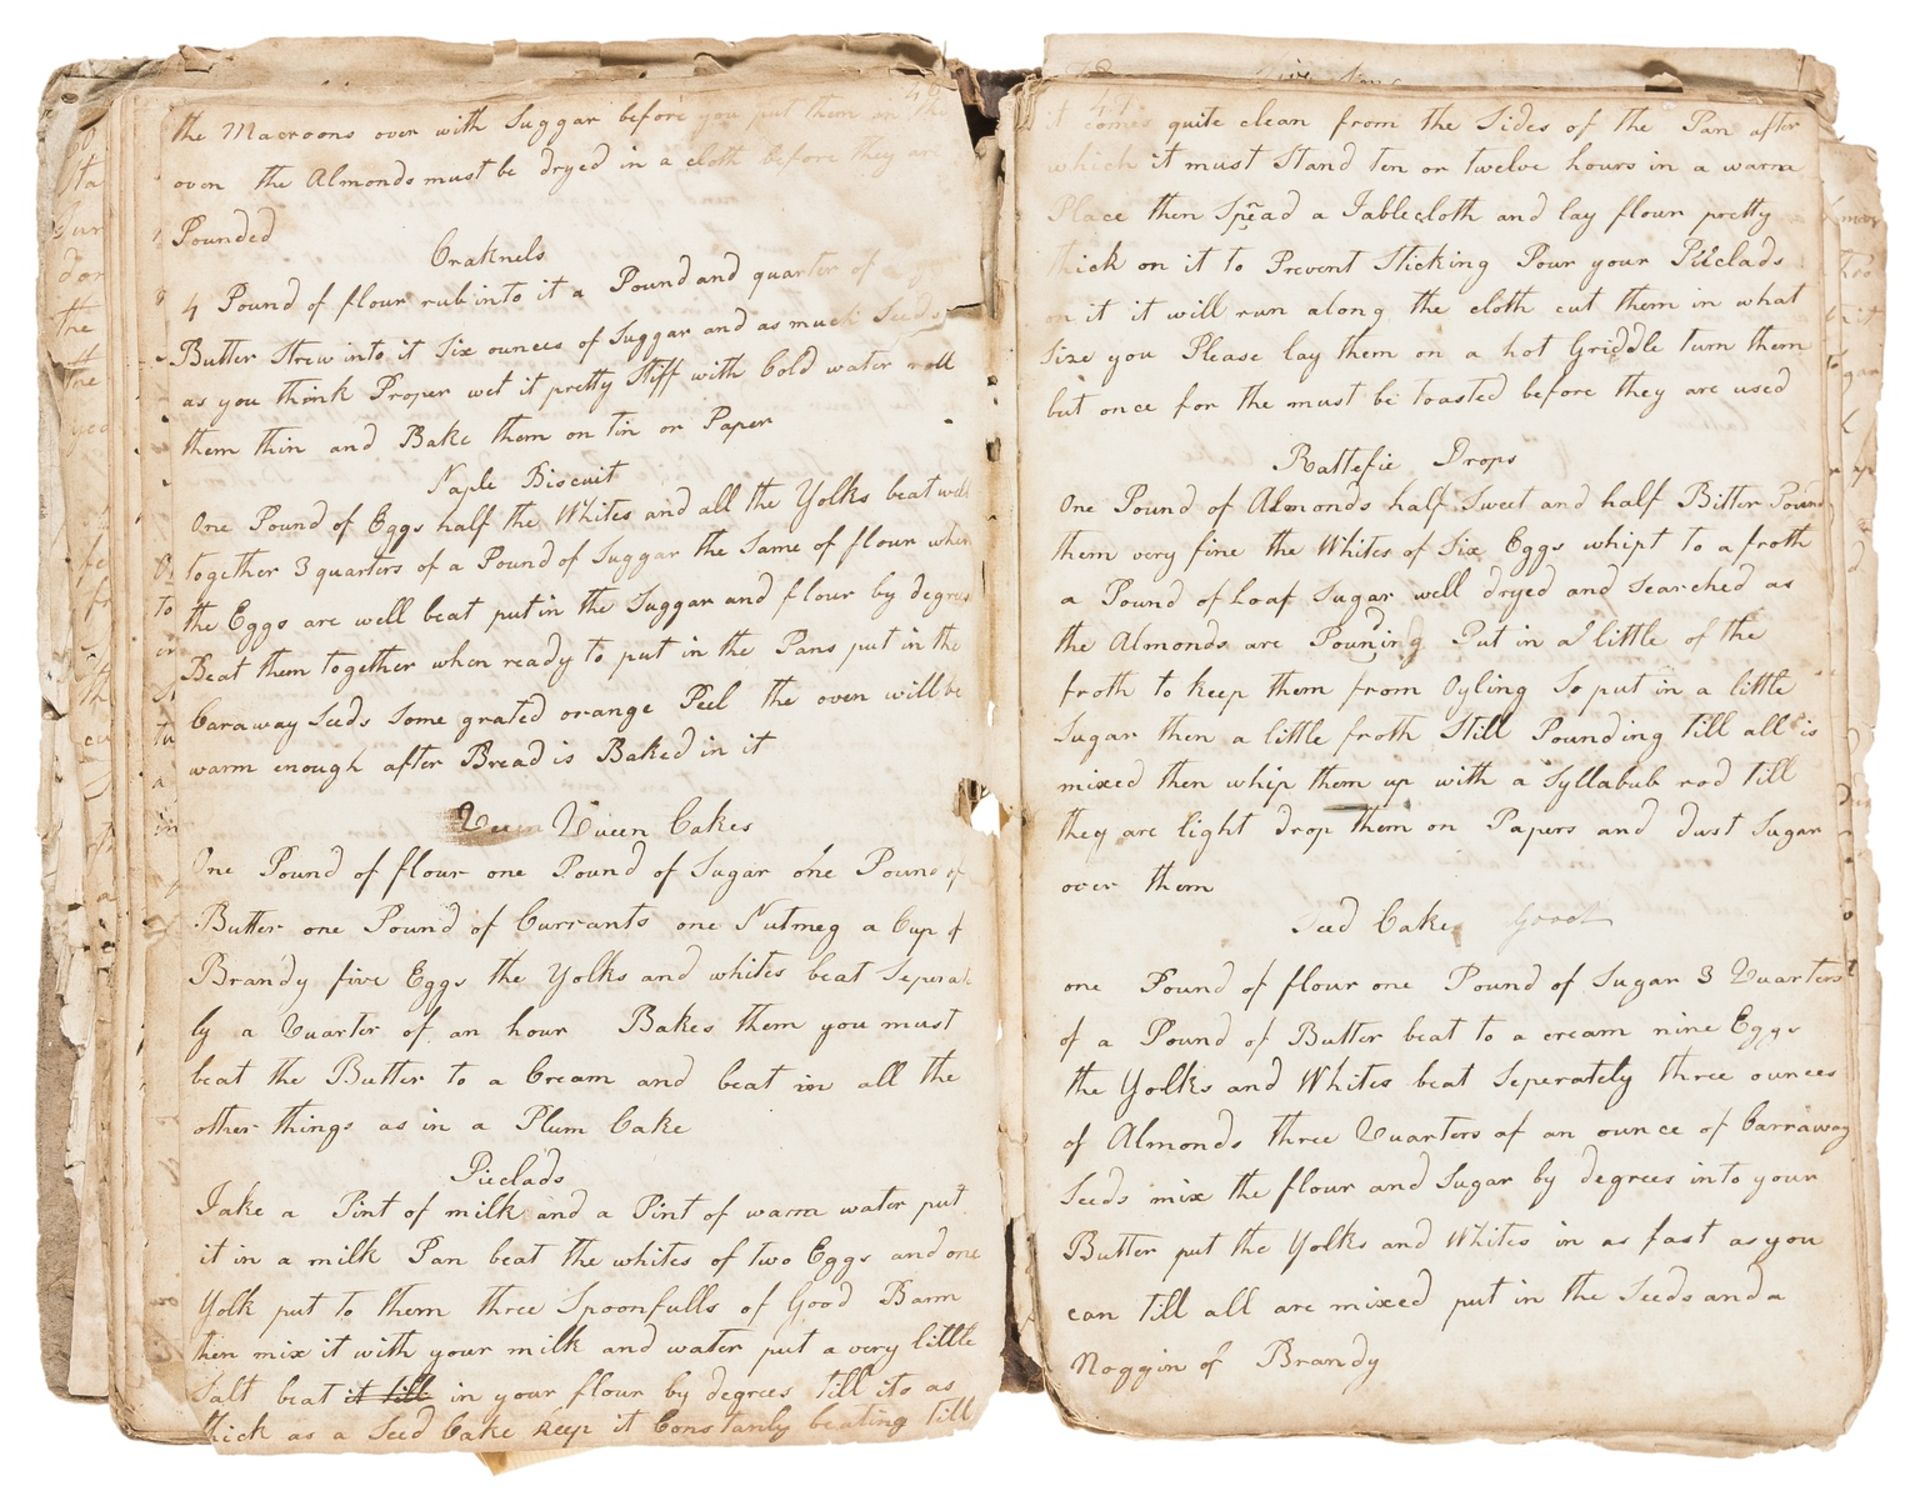 46
the Macroons over with Suggar before you put them in the
oven the Almonds must be dryed in a cloth before they are
Pounded
Craknels
4 Pound of flour rub into it a Pound and quarter of
Butter Strew into it Six ounces of Suggar and as much Seeds
as you think Proper wet it pretty Stiff with Cold water roll
them thin and Bake them on tin or Paper
Naple Biscuit
One Pound of Eggs half the Whites and all the Yolks beat well
together 3 quarters of a Pound of Suggar the Same of flour when
the Eggs are well beat put in the Suggar and flour by degrees
Beat them together when ready to put in the Pans put in the
Caraway Seeds Some grated orange Peel the oven will be
warm enough after Bread is Baked in it
Queen Cakes
One Pound of flour one Pound of Sugar one Pound of
Butter one Pound of Currants one Nutmeg a Cup of
Brandy five Eggs the Yolks and whites beat Seperate
ly a Quarter of an hour Bakes them you must
beat the Butter to a Cream and beat in all the
other things as in a Plum Cake
Pieclads
Take a Pint of milk and a Pint of warm water put
it in a milk Pan beat the whites of two Eggs and one
Yolk put to them three Spoonfulls of Good Barm
then mix it with your milk and water put a very little
Salt beat it till in your flour by degrees till its as
thick as a Seed Cake keep it Constantly beating till
47
it comes quite clean from the Sides of the Pan after
which it must Stand ten or twelve hours in a warm
Place then Spread a Tablecloth and lay flour pretty
thick on it to Prevent Sticking Pour your Pieclads
on it it will run along the cloth cut them in what
Size you Please lay them on a hot Griddle turn them
but once for the must be toasted before they are used
Rattefie Drops
One Pound of Almonds half Sweet and half Bitter Pound
them very fine the Whites of Six Eggs whipt to a froth
a Pound of Loaf Sugar well dryed and Searched as
the Almonds are Pounding Put in a little of the
froth to keep them from Oyling So put in a little
Sugar then a little froth Still Pounding till all is
mixed then whip them up with a Syllabub rod till
they are light drop them on Papers and dust Sugar
over them
Seed Cake Good
one Pound of flour one Pound of Sugar 3 Quarters
of a Pound of Butter beat to a cream nine Eggs
the Yolks and Whites beat Seperately three ounces
of Almonds three Quarters of an ounce of Carraway
Seeds mix the flour and Sugar by degrees into your
Butter put the Yolks and Whites in as fast as you
can till all are mixed put in the Seeds and a
Noggin of Brandy